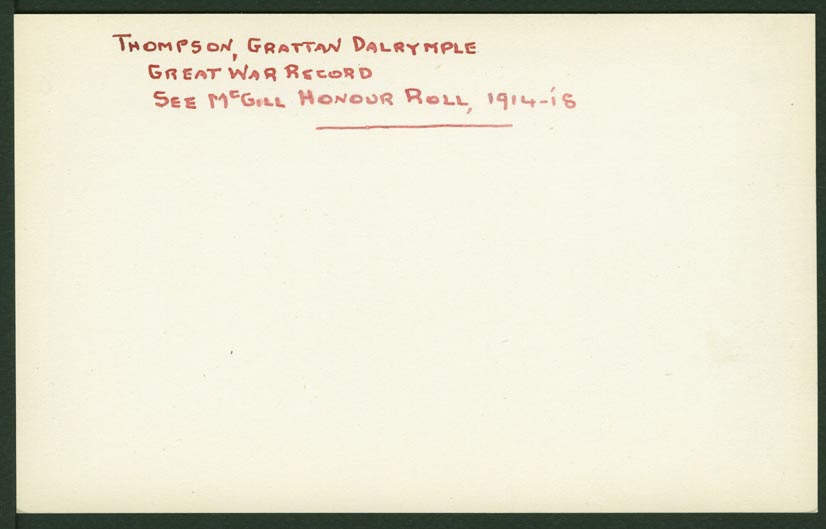 THOMPSON, GRATTAN DALRYMPLE
GREAT WAR RECORD
SEE McGILL HONOUR ROLL, 1914-18